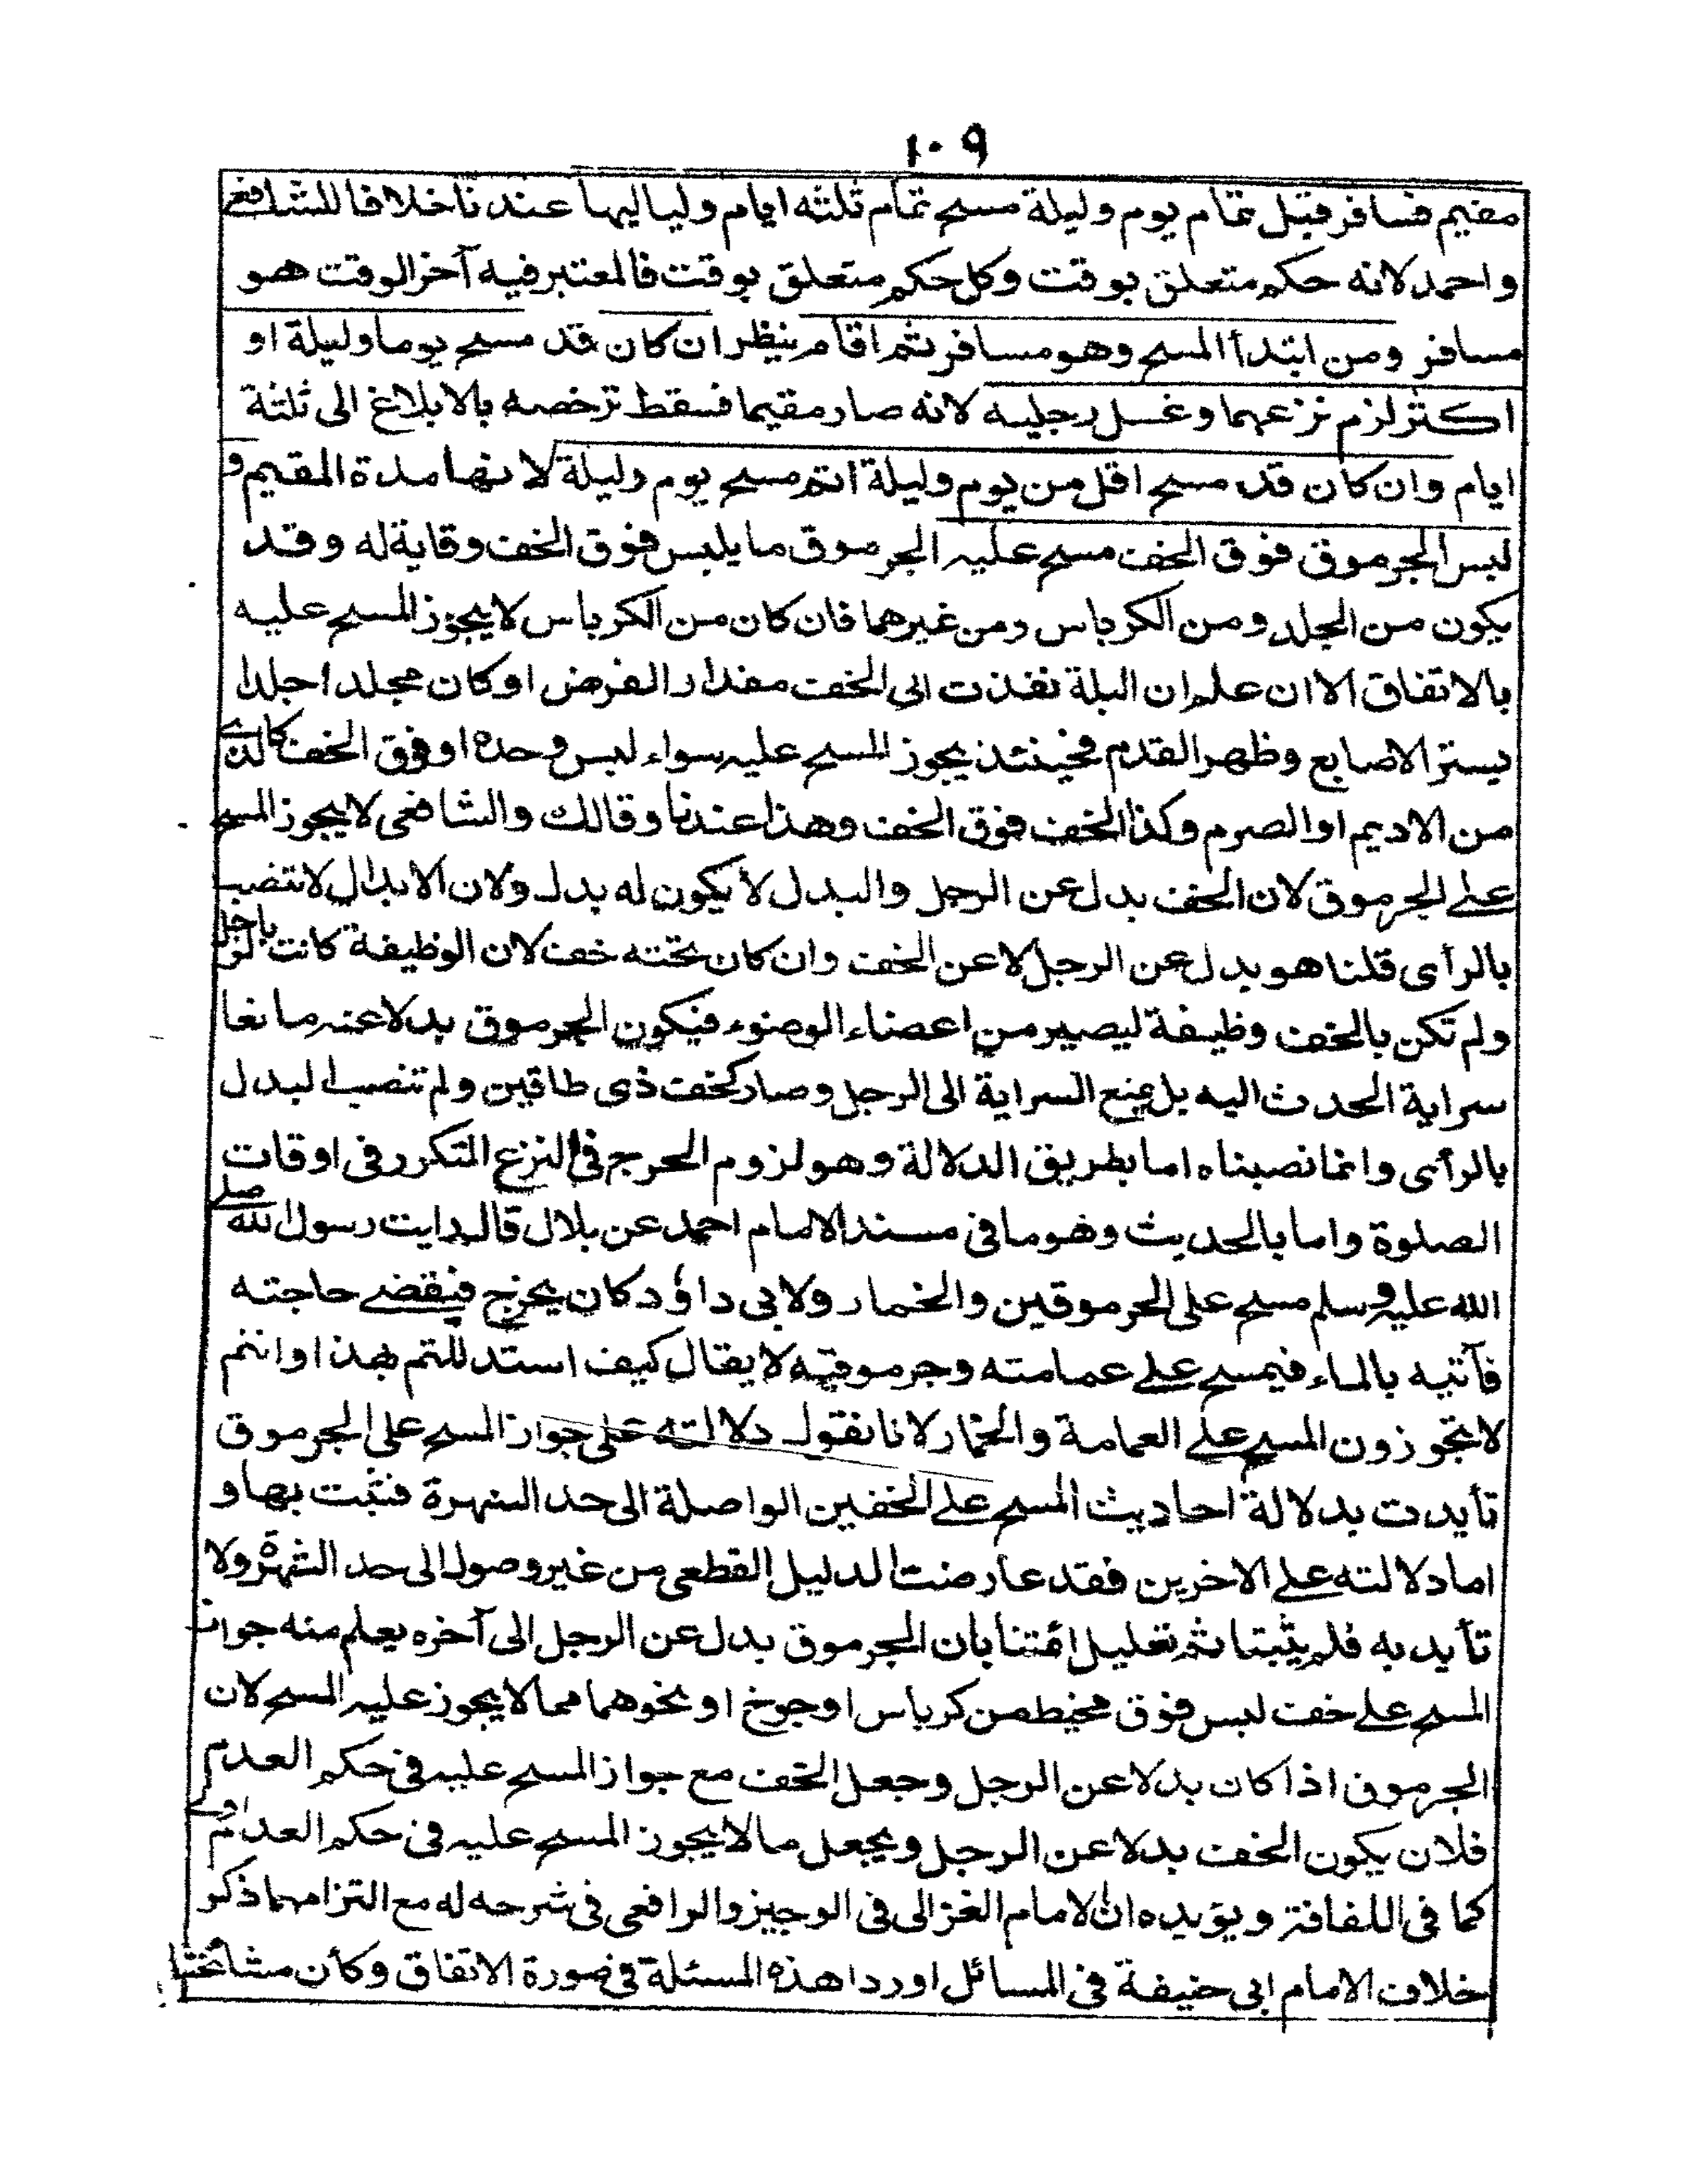 ١٠٩
مقيم فسافر قبل تمام يوم وليلة مسح تمام ثلثه ايام ولياليها عندنا خلافا للشافعى
واحمد لانه حكم متعلق بوقت وكل حكم متعلق بوقت فالمعتبر فيه آخر الوقت هو
مسافر ومن ابتدأ المسح وهو مسافر ثم اقام ينظر ان كان قد مسح يوما وليلة او
اكثر لزم نزعهما وغسل رجليه لانه صار مقيما فسقط ترخصه بالابلاغ الى ثلثة
ايام وان كان قد مسح اقل من يوم وليلة اتم مسح يوم وليلة لانها مدة المقيم و
لبس الجرموق فوق الخف مسح عليه الجرموق ما يلبس فوق الخف وقاية له وقد
يكون من الجلد ومن الكرباس ومن غيرهما فان كان من الكرباس لا يجوز المسح عليه
بالاتفاق الا ان علم ان البلة نفذت الى الخف مقدار الفرض او كان مجلدا جلدا
يستر الاصابع وظهر القدم فحينئذ يجوز المسح عليه سواء لبس وحده او فوق الخف كالذى
من الاديم او الصرم وكذا الخف فوق الخف وهذا عندنا وقالك والشافعى لا يجوز المسح
على الجرموق لان الخف بدل عن الرجل والبدل لا يكون له بدل ولان الابدال لا تنصب
بالرأى قلنا هو بدل عن الرجل لا عن الخف وان كان تحته خف لان الوظيفة كانت بالرجل
ولم تكن بالخف وظيفة ليصير من اعضاء الوضوء فيكون الجرموق بدلا عنه مانعا
سراية الحدث اليه بل يمنع السراية الى الرجل وصار كخف ذى طاقين ولم تنصب البدل
بالرأى وانما نصبناه اما بطريق الدلالة وهو لزوم الحرج فى النزع المتكرر فى اوقات
الصلوة واما بالحديث وهو ما فى مسند الامام احمد عن بلال قال رايت رسول الله صلى
الله عليه وسلم مسح على الجرموقين والخمار ولابى داؤد كان يخرج فيقضے حاجته
فآتيه بالماء فيمسح على عمامته وجرموقيه لا يقال كيف استدللتم بهذا وانتم
لا تجوزون المسح على العمامة والخمار لانا نقول دلالته على جواز المسح على الجرموق
تأيدت بدلالة احاديث المسح على الخفين الواصلة الى حد الشهرة فثبت بها و
اما دلالته على الاخرين فقد عارضت الدليل القطعى من غير وصول الى حد الشهرة ولا
تأيد به فلم يثبتا ثم تعليل ائمتنا بان الجرموق بدل عن الرجل الى آخره يعلم منه جواز
المسح على خف لبس فوق مخيط من كرباس او جوخ او نحوهما مما لا يجوز عليه المسح لان
الجرموق اذا كان بدلا عن الرجل وجعل الخف مع جواز المسح عليه فى حكم العدم
فلان يكون الخف بدلا عن الرجل ويجعل ما لا يجوز المسح عليه فى حكم العدم اولى
كما فى اللفافة ويؤيده ان الامام الغزالى فى الوجيز والرافعى فى شرحه له مع التزامهما ذكر
خلاف الامام ابى حنيفة فى المسائل اوردا هذه المسئلة فى صورة الاتفاق وكأن مشائخنا